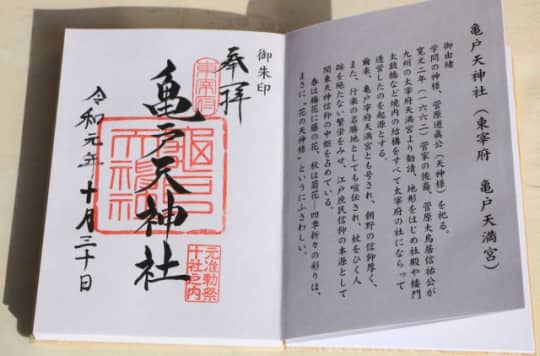 亀戸天神社(東宰府 亀戸天満宮)
御由緒
学問の神様、菅原道眞公(天神様)を祀る。
寛文二年(一六六二)菅家の後裔、菅原大鳥居信祐公が
九州の太宰府天満宮より勧請、地形をはじめ社殿や楼門
太鼓橋など境内の結構をすべて太宰府の社にならって
造営したのを起源とする。
爾来、亀戸宰府天満宮とも号され、朝野の信仰厚く、
また、行楽の名勝地としても喧伝され、杖をひく人
跡を絶たない繁栄をみせ、江戸庶民信仰の本源として
関東天神信仰の中枢を占めている。
春は梅花に藤の花、秋は菊花―四季折々の彩りは、
まさに「花の天神様」というにふさわしい。
御朱印
奉拝
東宰府
亀戸天神社
亀戸天神社
元准勅祭
十社之内
令和元年十月三十日